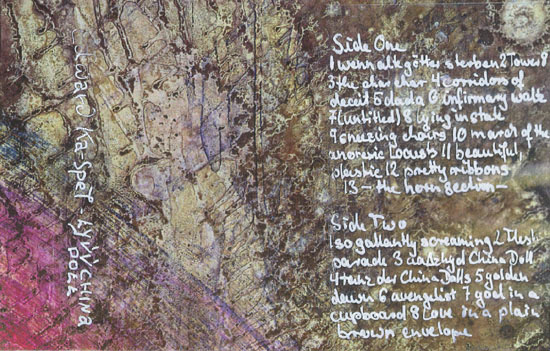 Edward Ka-Spel - Lyvv China
Doll
Side One
1 wenn alte götter sterben 2 Tower 8
3 the char char 4 corridors of
deceit 5 dada 6 infirmary waltz
7 (untitled) 8 lying in state
9 sneezing chairs 10 march of the
anorexic Locusts 11 beautiful
plaistic 12 pretty ribbons
13 - the horn section -
Side Two
1 so gallantly screaming 2 Illest
parade 3 aadzhyd China Doll
4 tanz der China Dolls 5 golden
dawn 6 avengelist 7 god in a
cupboard 8 Love in a plain
brown envelope